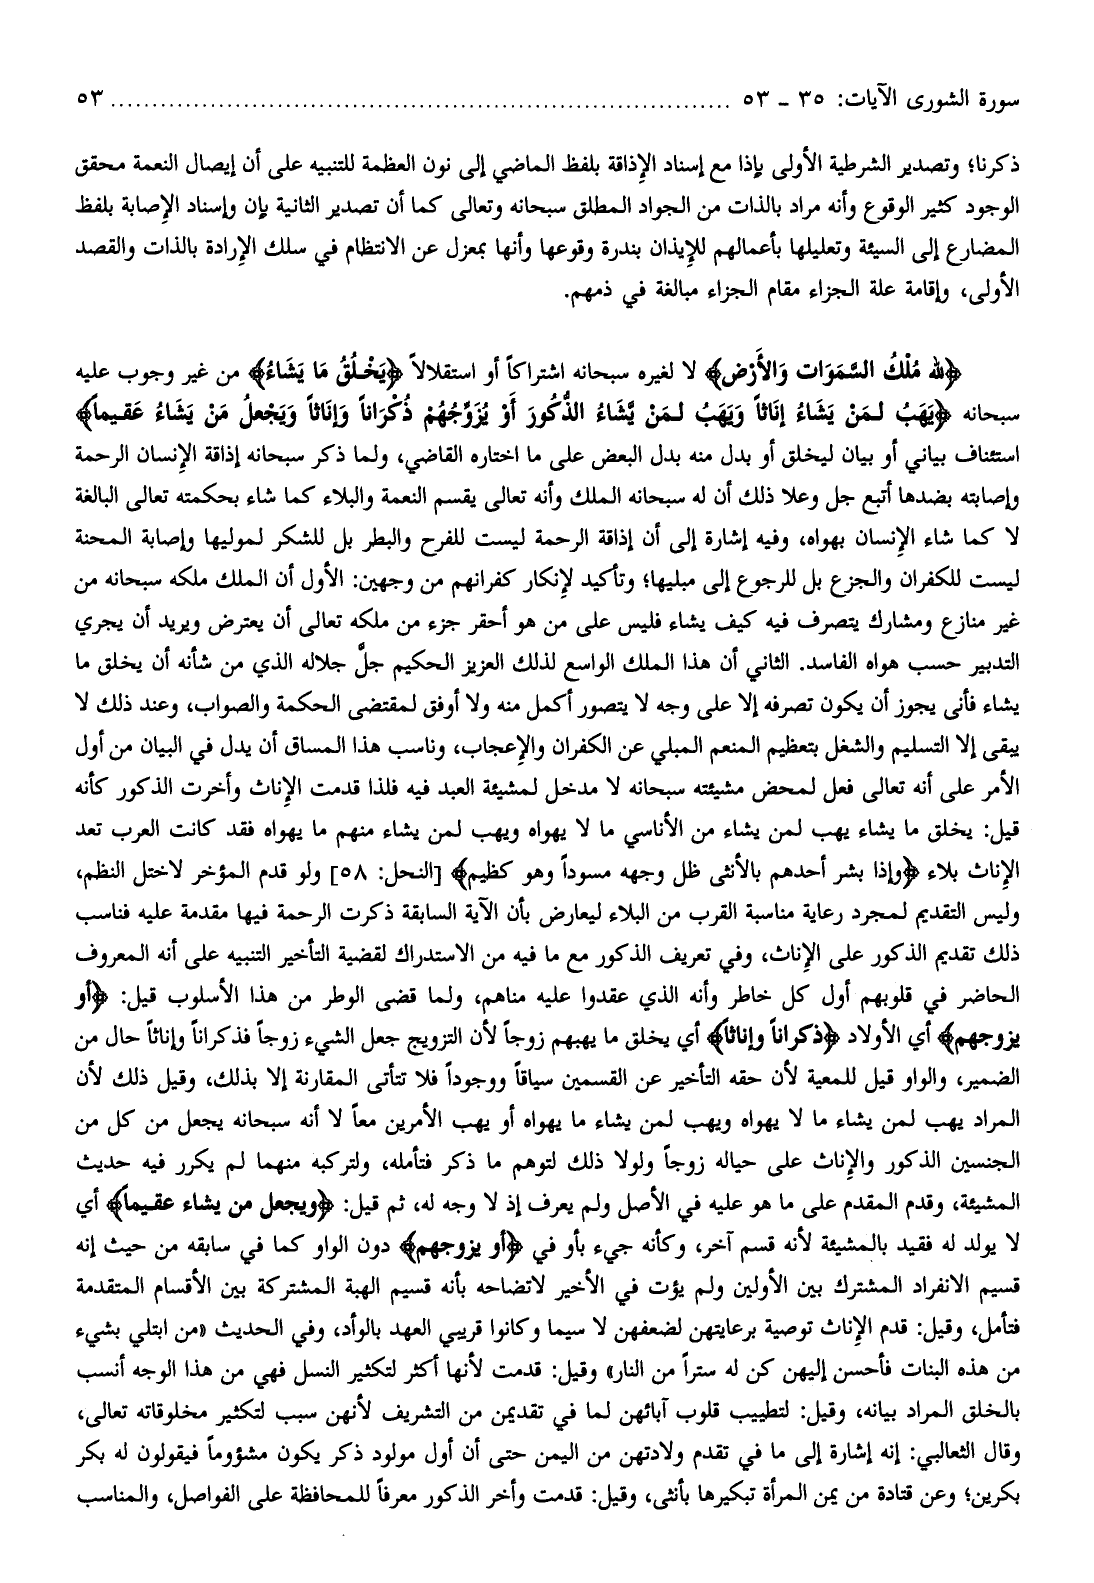 سورة الشورى الآيات: ٣٥ ـ ٥٣ ........................................................................... ٥٣
ذكرنا؛ وتصدير الشرطية الأولى بإذا مع إسناد الإذاقة بلفظ الماضي إلى نون العظمة للتنبيه على أن إيصال النعمة محقق
الوجود كثير الوقوع وأنه مراد بالذات من الجواد المطلق سبحانه وتعالى كما أن تصدير الثانية بإن وإسناد الإصابة بلفظ
المضارع إلى السيئة وتعليلها بأعمالهم للإيذان بندرة وقوعها وأنها بمعزل عن الانتظام في سلك الإرادة بالذات والقصد
الأولى، وإقامة علة الجزاء مقام الجزاء مبالغة في ذمهم.
﴿لله مُلْكُ السَّمَوَات وَالأَرْض﴾ لا لغيره سبحانه اشتراكاً أو استقلالاً ﴿يَخْلُقُ مَا يَشَاءُ﴾ من غير وجوب عليه
سبحانه ﴿يَهَبُ لـمَنْ يَشَاءُ إنَاثاً وَيَهَبُ لـمَنْ يَّشَاءُ الذُّكُورَ أَوْ يُزَوِّجُهُمْ ذُكْرَاناً وَإنَاثاً وَيَجْعلُ مَنْ يَشَاءُ عَقـيماً﴾
استئناف بياني أو بيان ليخلق أو بدل منه بدل البعض على ما اختاره القاضي، ولما ذكر سبحانه إذاقة الإنسان الرحمة
وإصابته بضدها أتبع جل وعلا ذلك أن له سبحانه الملك وأنه تعالى يقسم النعمة والبلاء كما شاء بحكمته تعالى البالغة
لا كما شاء الإنسان بهواه، وفيه إشارة إلى أن إذاقة الرحمة ليست للفرح والبطر بل للشكر لموليها وإصابة المحنة
ليست للكفران والجزع بل للرجوع إلى مبليها؛ وتأكيد لإنكار كفرانهم من وجهين: الأول أن الملك ملكه سبحانه من
غير منازع ومشارك يتصرف فيه كيف يشاء فليس على من هو أحقر جزء من ملكه تعالى أن يعترض ويريد أن يجري
التدبير حسب هواه الفاسد. الثاني أن هذا الملك الواسع لذلك العزيز الحكيم جلَّ جلاله الذي من شأنه أن يخلق ما
يشاء فأنى يجوز أن يكون تصرفه إلا على وجه لا يتصور أكمل منه ولا أوفق لمقتضى الحكمة والصواب، وعند ذلك لا
يبقى إلا التسليم والشغل بتعظيم المنعم المبلي عن الكفران والإعجاب، وناسب هذا المساق أن يدل في البيان من أول
الأمر على أنه تعالى فعل لمحض مشيئته سبحانه لا مدخل لمشيئة العبد فيه فلذا قدمت الإناث وأخرت الذكور كأنه
قيل: يخلق ما يشاء يهب لمن يشاء من الأناسي ما لا يهواه ويهب لمن يشاء منهم ما يهواه فقد كانت العرب تعد
الإناث بلاء ﴿وإذا بشر أحدهم بالأنثى ظل وجهه مسوداً وهو كظيم﴾ [النحل: ٥٨] ولو قدم المؤخر لاختل النظم،
وليس التقديم لمجرد رعاية مناسبة القرب من البلاء ليعارض بأن الآية السابقة ذكرت الرحمة فيها مقدمة عليه فناسب
ذلك تقديم الذكور على الإناث، وفي تعريف الذكور مع ما فيه من الاستدراك لقضية التأخير التنبيه على أنه المعروف
الحاضر في قلوبهم أول كل خاطر وأنه الذي عقدوا عليه مناهم، ولما قضى الوطر من هذا الأسلوب قيل: ﴿أو
يزوجهم﴾ أي الأولاد ﴿ذكراناً وإناثاً﴾ أي يخلق ما يهبهم زوجاً لأن التزويج جعل الشيء زوجاً فذكراناً وإناثاً حال من
الضمير، والواو قيل للمعية لأن حقه التأخير عن القسمين سياقاً ووجوداً فلا تتأتى المقارنة إلا بذلك، وقيل ذلك لأن
المراد يهب لمن يشاء ما لا يهواه ويهب لمن يشاء ما يهواه أو يهب الأمرين معاً لا أنه سبحانه يجعل من كل من
الجنسين الذكور والإناث على حياله زوجاً ولولا ذلك لتوهم ما ذكر فتأمله، ولتركبه منهما لم يكرر فيه حديث
المشيئة، وقدم المقدم على ما هو عليه في الأصل ولم يعرف إذ لا وجه له، ثم قيل: ﴿ويجعل من يشاء عقـيماً﴾ أي
لا يولد له فقيد بالمشيئة لأنه قسم آخر، وكأنه جيء بأو في ﴿أو يزوجهم﴾ دون الواو كما في سابقه من حيث إنه
قسيم الانفراد المشترك بين الأولين ولم يؤت في الأخير لاتضاحه بأنه قسيم الهبة المشتركة بين الأقسام المتقدمة
فتأمل، وقيل: قدم الإناث توصية برعايتهن لضعفهن لا سيما وكانوا قريبي العهد بالوأد، وفي الحديث «من ابتلي بشيء
من هذه البنات فأحسن إليهن كن له ستراً من النار» وقيل: قدمت لأنها أكثر لتكثير النسل فهي من هذا الوجه أنسب
بالخلق المراد بيانه، وقيل: لتطييب قلوب آبائهن لما في تقديمن من التشريف لأنهن سبب لتكثير مخلوقاته تعالى،
وقال الثعالبي: إنه إشارة إلى ما في تقدم ولادتهن من اليمن حتى أن أول مولود ذكر يكون مشؤوماً فيقولون له بكر
بكرين؛ وعن قتادة من يمن المرأة تبكيرها بأنثى، وقيل: قدمت وأخر الذكور معرفاً للمحافظة على الفواصل، والمناسب